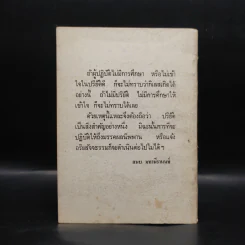 ถ้าผู้ปฏิบัติไม่มีการศึกษา หรือไม่เข้า
ใจในปริยัติ ก็จะไม่ทราบว่ากิเลสเกิดได้
อย่างนี้ ถ้าไม่มีปริยัติ ไม่มีการศึกษาให้
เข้าใจ ก็จะไม่ทราบได้เลย
ด้วยเหตุนี้และจึงต้องถือว่า ปริยัติ
เป็นสิ่งสำคัญอย่างหนึ่ง มิฉะนั้นการที่จะ
ปฏิบัติให้ถึงมรรคผลนิพพาน หรือแจ้ง
อริยสัจจธรรมก็จะดำเนินต่อไปไม่ได้ฯ